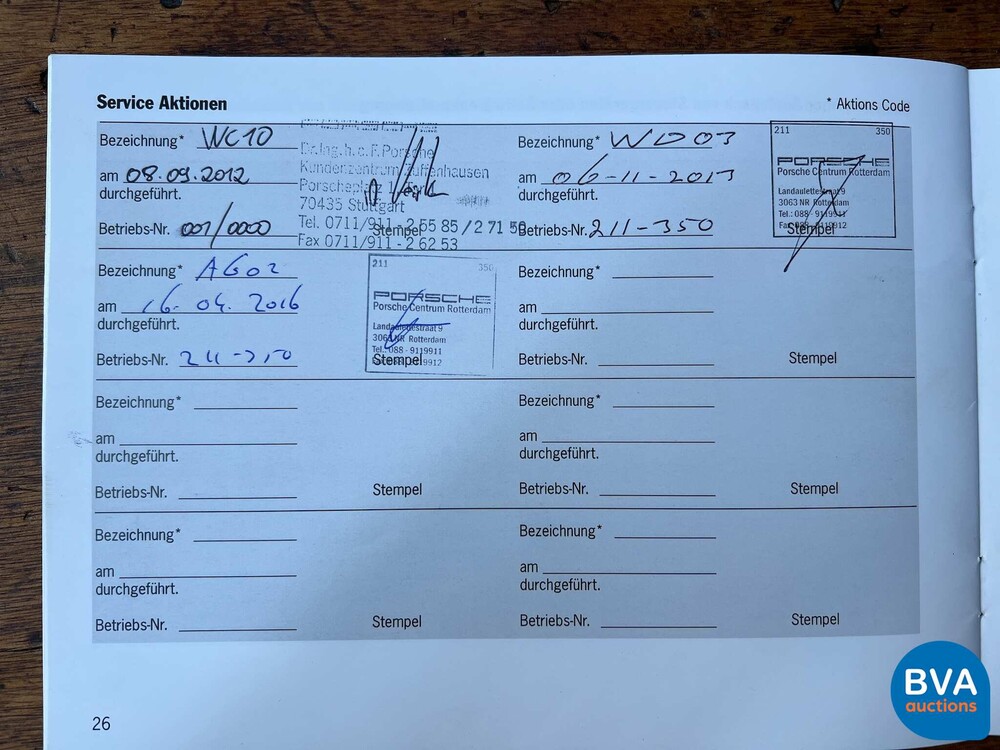 Service Aktionen
* Aktions Code
Bezeichnung* WC10
am 08.09.2012
durchgeführt.
Betriebs-Nr. 001/0000
Dr.Ing.h.c.F.Porsche
Kundenzentrum Zuffenhausen
Porscheplatz 1
70435 Stuttgart
Tel. 0711/911 - 2 55 85 / 2 71 50
Fax 0711/911 - 2 62 53
Stempel
Bezeichnung* WD03
am 06-11-2013
durchgeführt.
Betriebs-Nr. 211-350
211 350
PORSCHE
Porsche Centrum Rotterdam
Landaulettestraat 9
3063 NR Rotterdam
Tel.: 088 - 9119911
Stempel
Bezeichnung* AG02
am 16-04-2016
durchgeführt.
Betriebs-Nr. 211-350
211 350
PORSCHE
Porsche Centrum Rotterdam
Landaulettestraat 9
3063 NR Rotterdam
Tel.: 088 - 9119911
Stempel
Bezeichnung*
am
durchgeführt.
Betriebs-Nr.
Stempel
Bezeichnung*
am
durchgeführt.
Betriebs-Nr.
Stempel
Bezeichnung*
am
durchgeführt.
Betriebs-Nr.
Stempel
Bezeichnung*
am
durchgeführt.
Betriebs-Nr.
Stempel
Bezeichnung*
am
durchgeführt.
Betriebs-Nr.
Stempel
26
BVA
auctions